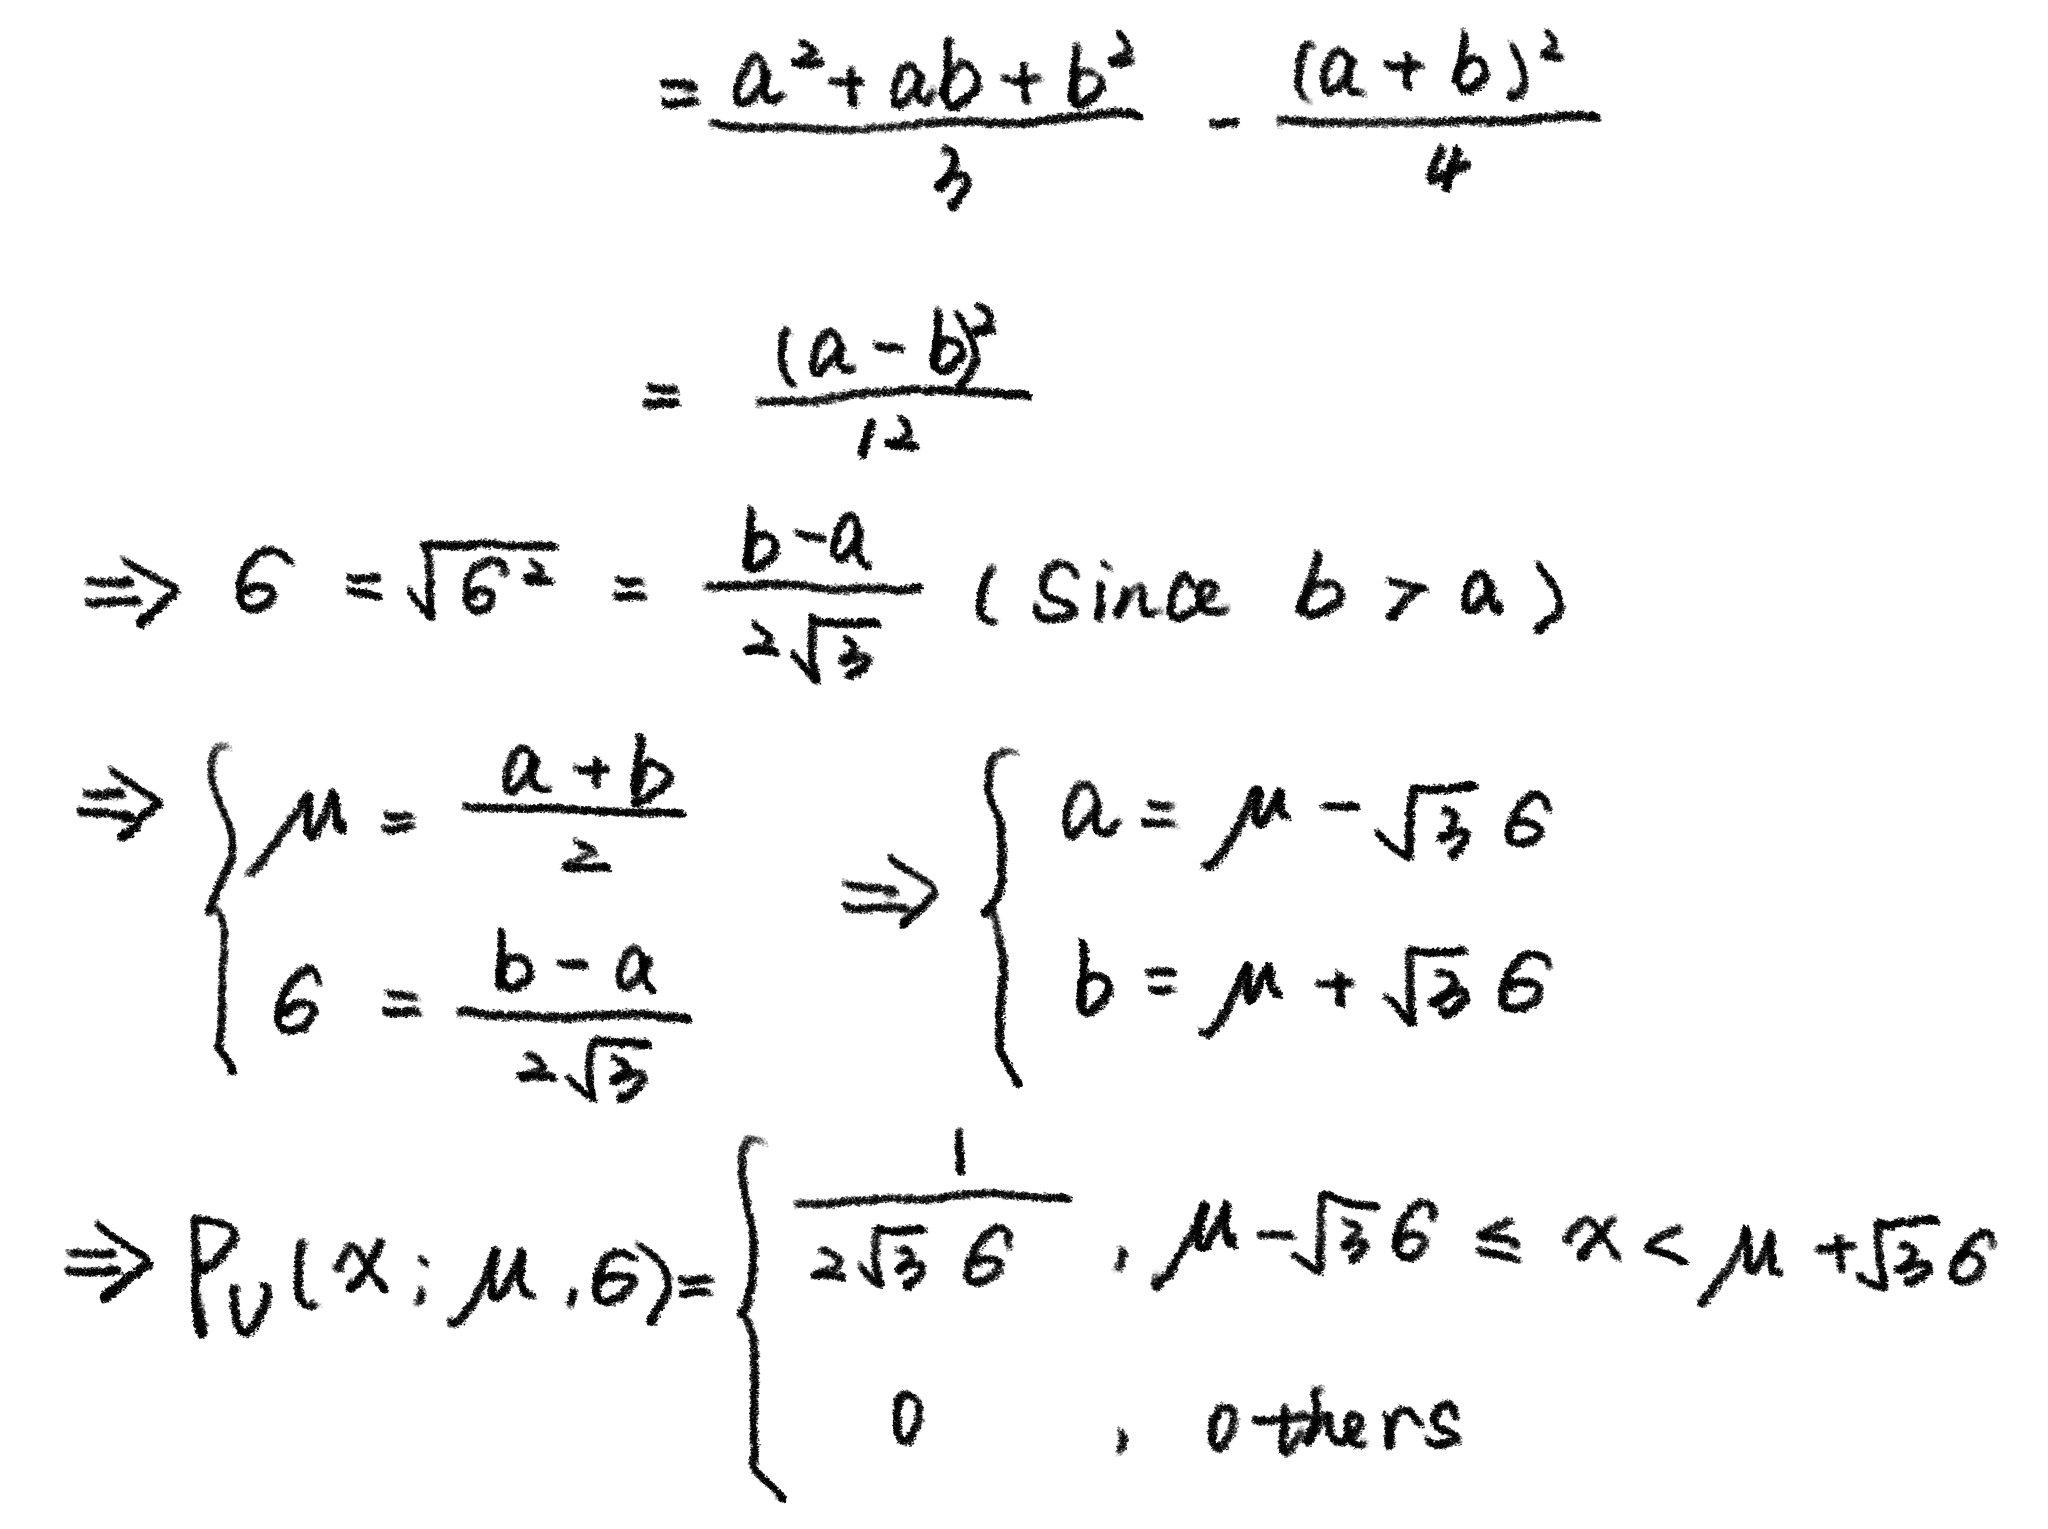 = \frac{a^2 + ab + b^2}{3} - \frac{(a + b)^2}{4}
= \frac{(a - b)^2}{12}
⇒ σ = \sqrt{σ^2} = \frac{b - a}{2\sqrt{3}} (Since b > a)
⇒ { μ = \frac{a + b}{2}, σ = \frac{b - a}{2\sqrt{3}} ⇒ { a = μ - \sqrt{3} σ, b = μ + \sqrt{3} σ
⇒ P_U(x; μ, σ) = { \frac{1}{2\sqrt{3} σ} , μ - \sqrt{3} σ ≤ x < μ + \sqrt{3} σ
0 , others